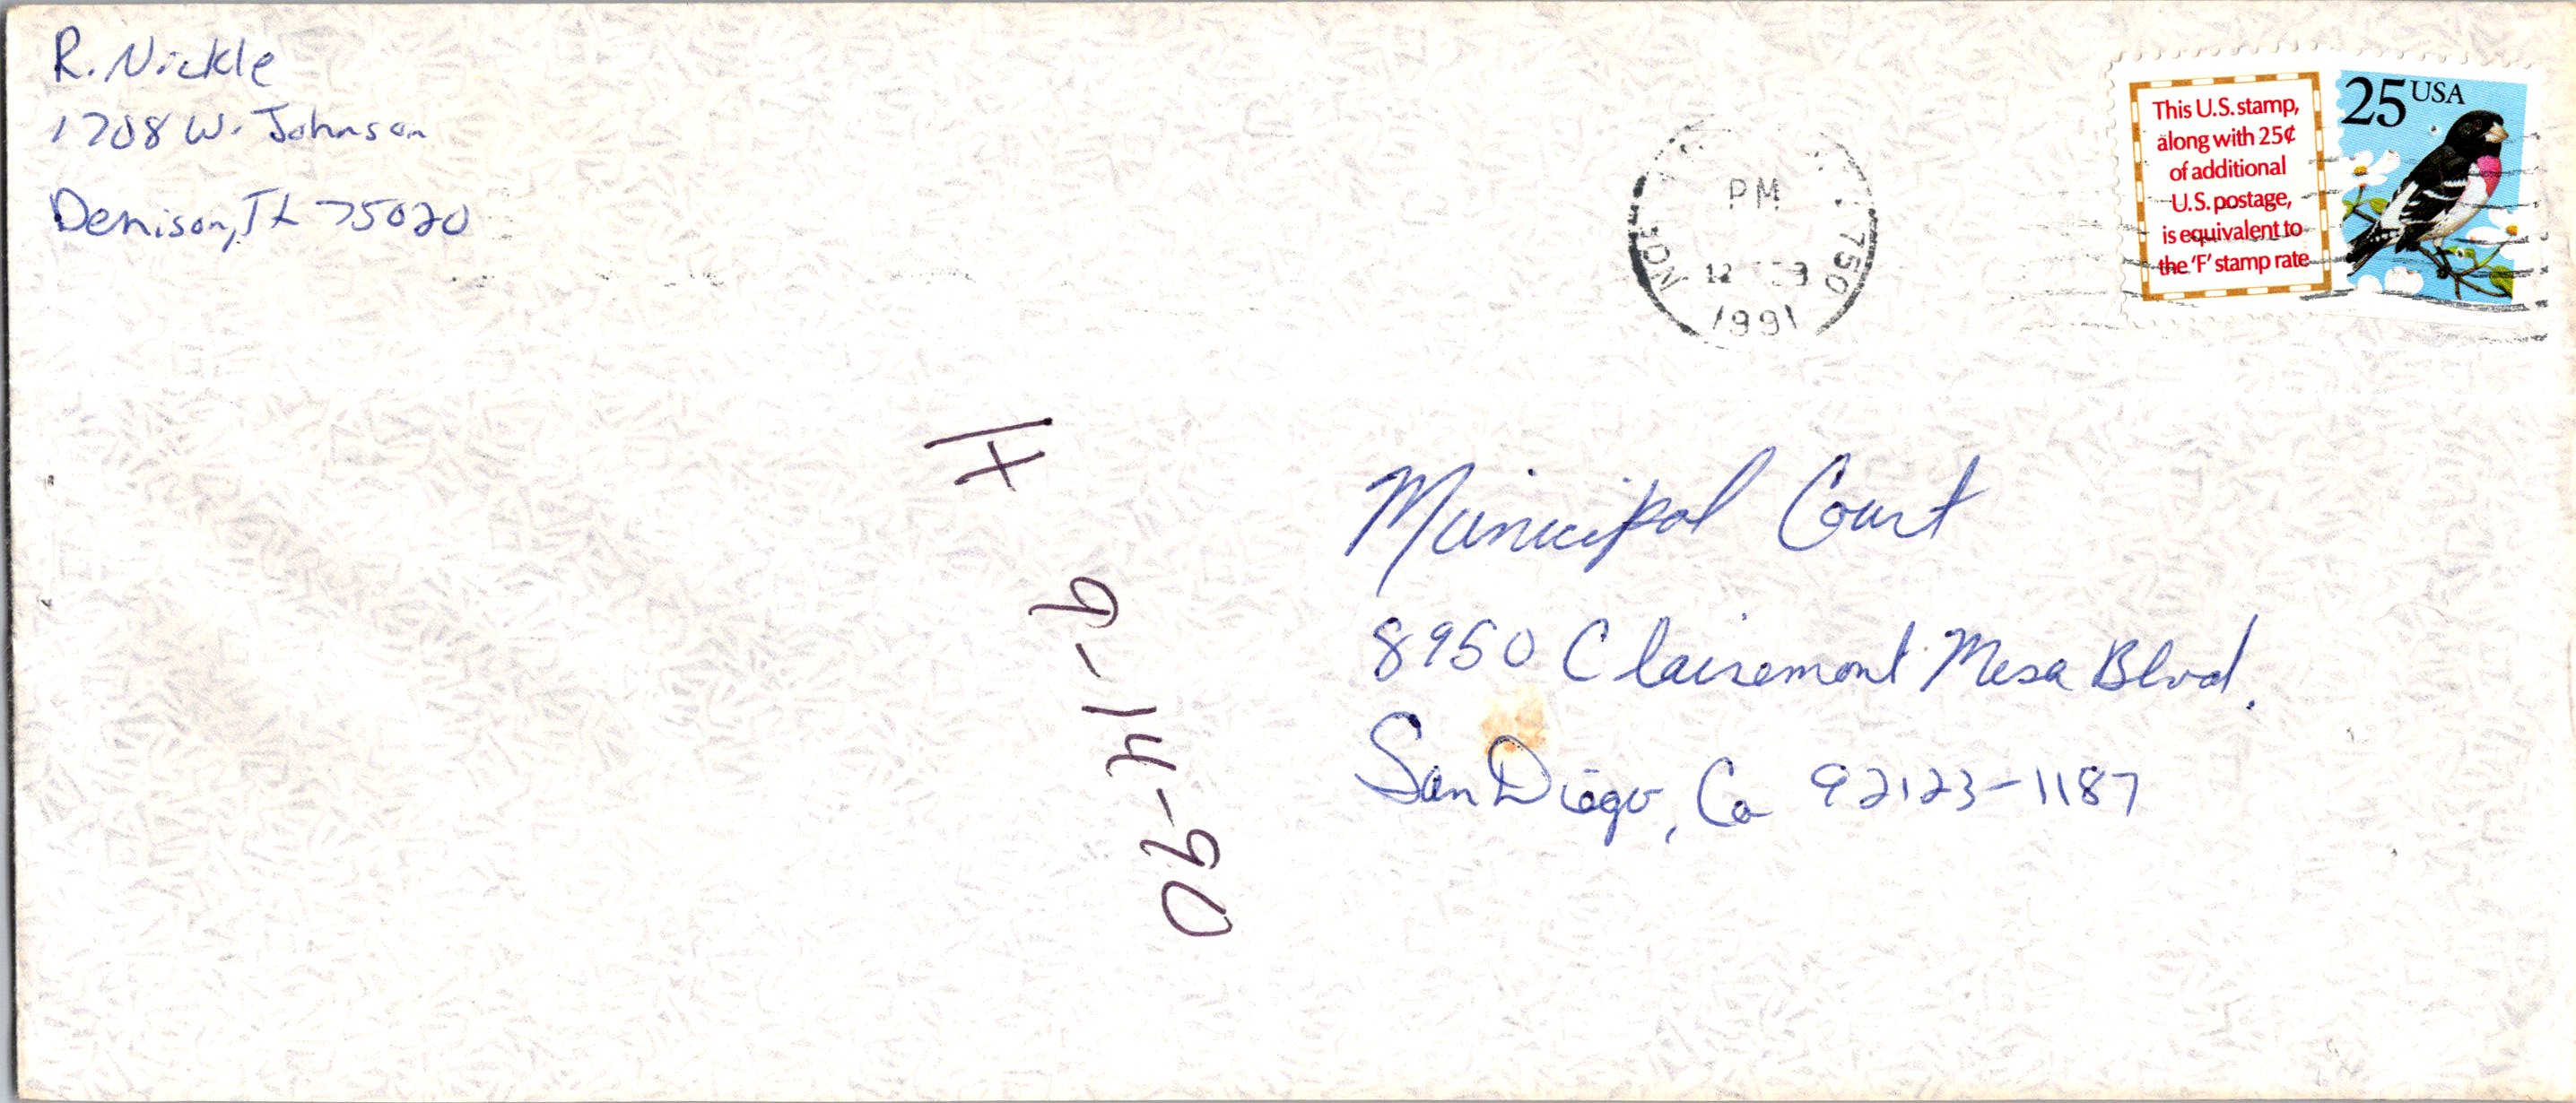 R. Nickle
1708 W. Johnson
Denison, Tx 75020
PM
750
12
1991
This U.S. stamp,
along with 25¢
of additional
U.S. postage,
is equivalent to
the 'F' stamp rate
25 USA
Municipal Court
8950 Clairemont Mesa Blvd.
San Diego, Ca 92123-1187